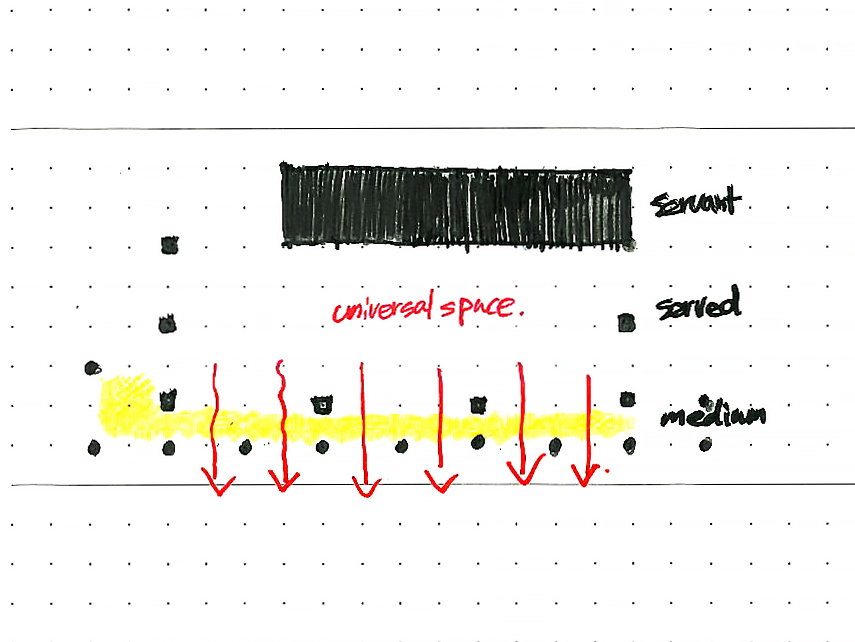 servant
universal space.
served
medium